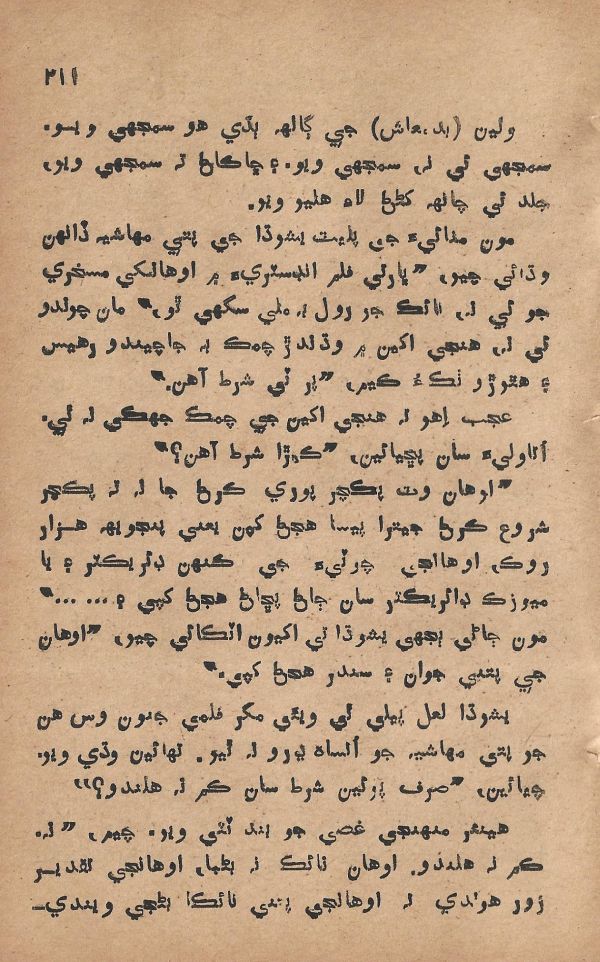 ٢١١
ولين (بدمعاش) جي ڳالهہ ٻڌي هو سمجهي ويو.
سمجهي ئي نہ، سمجهي ويو. ۽ ڇاڪاڻ تہ سمجهي ويو،
جلد ئي چانهہ کڻڻ لاءِ هليو ويو.
مون مٺائيءَ جي پليٽ يشوڌا جي پتي مهاشيہ ڏانهن
وڌائي چيو، ”ڀارتي فلم انڊسٽريءَ ۾ اوهانکي مسخري
جو ئي نہ، نائڪ جو رول بہ ملي سگهي ٿو.“ مان چوندو
ئي نہ، هنجي اکين ۾ وڌندڙ چمڪ بہ جاچيندو رهيس
۽ هٿوڙو ٺڪاءُ ڪيم، ”پر ٽي شرط آهن.“
عجب اهو تہ هنجي اکين جي چمڪ جهڪي نہ ٿي.
اُتاوليءَ سان پڇيائين، ”ڪهڙا شرط آهن؟“
”اوهان وٽ پڪچر پوري ڪرڻ جا نہ تہ پڪچر
شروع ڪرڻ جيترا پيسا هجڻ کپن يعني پنجويهہ هزار
روڪ، اوهانجي چوٽيءَ جي ڪنهن ڊائريڪٽر ۽ يا
ميوزڪ ڊائريڪٽر سان ڄاڻ پڇاڻ هجڻ کپي ۽... ...“
مون ڄاڻي ٻجهي يشوڌا تي اکيون اٽڪائي چيو، ”اوهان
جي پتني جوان ۽ سندر هجڻ کپي.“
يشوڌا لعل پيلي ٿي ويئي مگر فلمي جنون وس هن
جو پتي مهاشيہ جو اُتساهہ ڍرو نہ ٿيو. ٺهائين وڌي ويو.
چيائين، ”صرف پوئين شرط سان ڪم نہ هلندو؟“
هينئر منهنجي غصي جو بند ٽٽي ويو. چيم، ”نہ.
ڪم نہ هلندو. اوهان نائڪ نہ بڻبا، اوهانجي تقدير
زور هوندي تہ اوهانجي پتني نائڪا بڻجي ويندي—